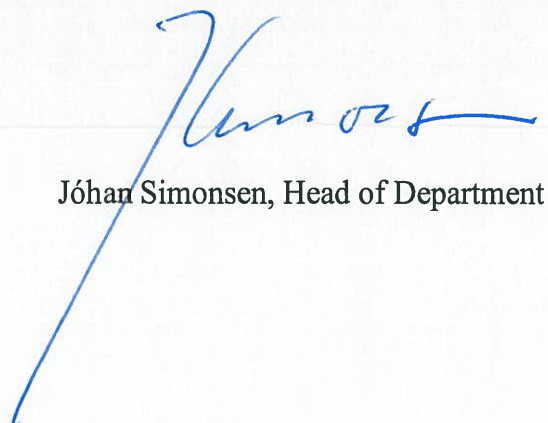 Jóhan Simonsen, Head of Department